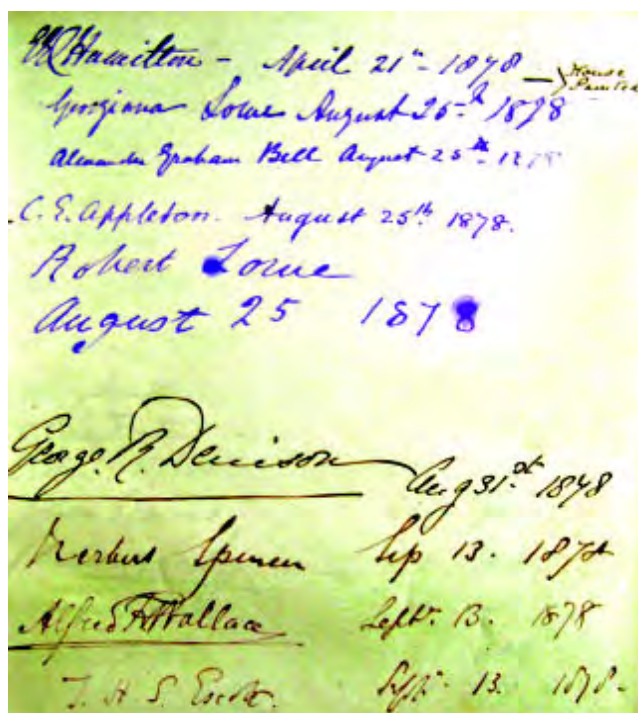 Hamilton - April 21st - 1878 - House Painted
Georgiana Lowe August 25th 1878
Alexander Graham Bell August 25th 1878
C. E. Appleton. August 25th 1878.
Robert Lowe
August 25 1878
George. R. Denison Aug 31.st 1878
Herbert Spencer Sep 13. 1878
Alfred R Wallace Septr. 13. 1878
T. H. S. Escott. Septr. 13. 1878-